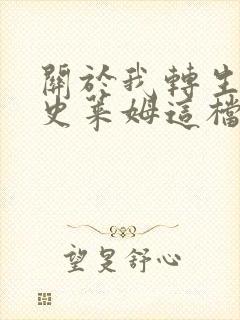 關於我轉生
史萊姆這檔
望旻舒心